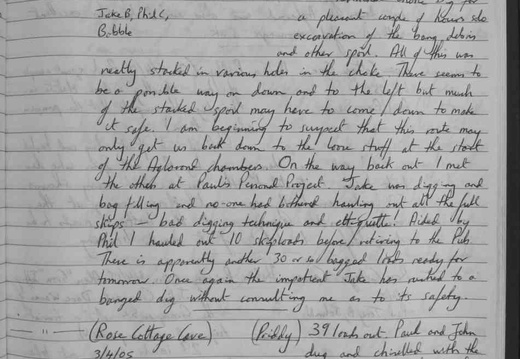 Jake B, Phil C, a pleasant couple of hours slo
Bubble excavation of the bang debris
and other spoil. All of this was
neatly stacked in various holes in the choke. There seems to
be a possible way on down and to the left but much
of the stacked spoil may have to come down to make
it safe. I am beginning to suspect that this route may
only get us back down to the loose stuff at the start
of the Aglarond chambers. On the way back out I met
the others at Paul's Personal Project. Jake was digging and
bag filling and no-one had bothered hauling out all the full
skips - bad digging technique and ett-quette! Aided by
Phil I hauled out 10 skiploads before retiring to the Pub.
There is apparently another 30 or so bagged loads ready for
tomorrow. Once again the impatient Jake has rushed to a
banged dig without consulting me as to its safety.
" — (Rose Cottage Cave) (Priddy) 39 loads out. Paul and John
3/4/05 dug and chiselled with the